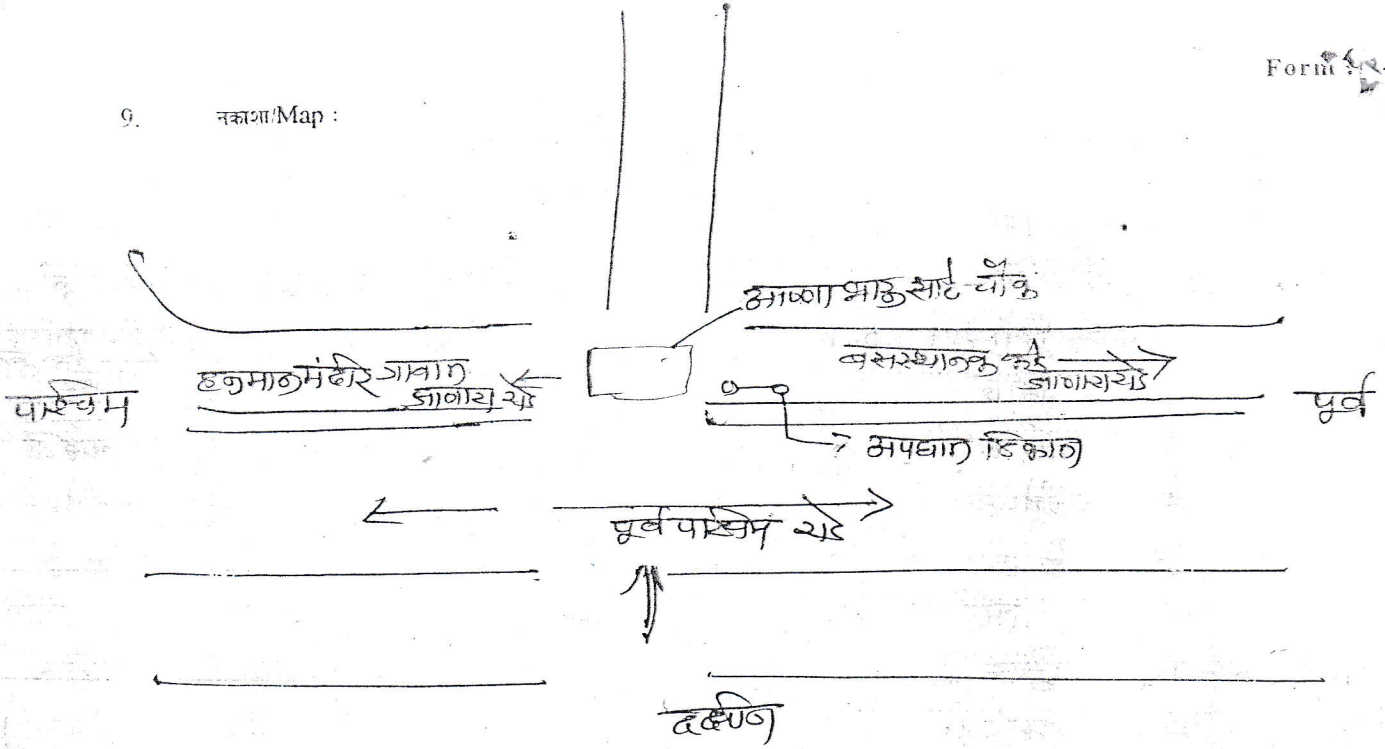 Form
9. नकाशा/Map :
आण्णा भाऊ साठे चौक
हनुमान मंदीर गावात
जाणारा रोड
बसस्थानक कडे
जाणारा रोड
पश्चिम
पूर्व
अपघात ठिकाण
पूर्व पश्चिम रोड
दक्षिण